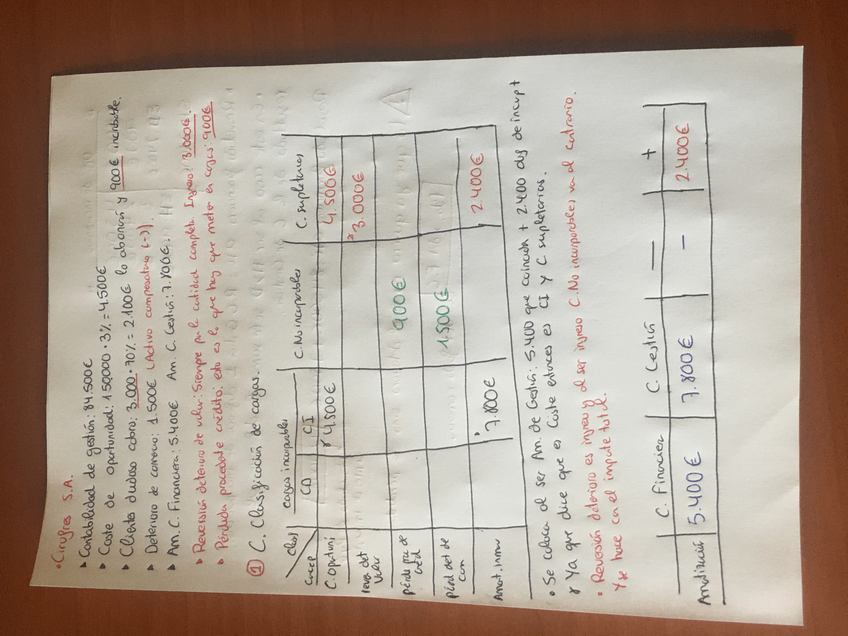 • Cirugres S.A.
▸ Contabilidad de gestión: 84.500€
▸ Coste de oportunidad: 150000 · 3% = 4.500€
▸ Cliente dudoso cobro: 3.000 · 70% = 2.100€ lo abonan y 900€ incobrable.
▸ Deterioro de comercio: 1.500€ (Activo compensatorio (-)).
▸ Am. C. Financiera: 5.400€ Am. C. Gestión: 7.800€.
▸ Reversión deterioro de valor: Siempre por la cantidad completa Ingreso: 3.000€.
▸ Pérdida procedente crédito: esto es lo que hay que meter en cargas: 900€
① C. Clasificación de cargas.
Clasf cargas incorporables C. No incorporables C. supletorias
Concep CD CI
C. Oportuni 4.500€ 4.500€
rever. det Valor *3.000€
pérdida pro de créd 900€
pérd det de com 1.500€
Amort. inmov 7.800€ 2.400€
• Se coloca al ser Am. de Gestión: 5.400 que coinciden + 2.400 dif de incorpt
Ya que dice que es Coste entonces es CI y C. supletorias.
• Reversión deterioro es ingreso y al ser ingreso C. No incorporables va al contrario.
Y se hace con el importe total.
C. Financier C. Gestión — +
Amortización 5.400€ 7.800€ - 2.400€